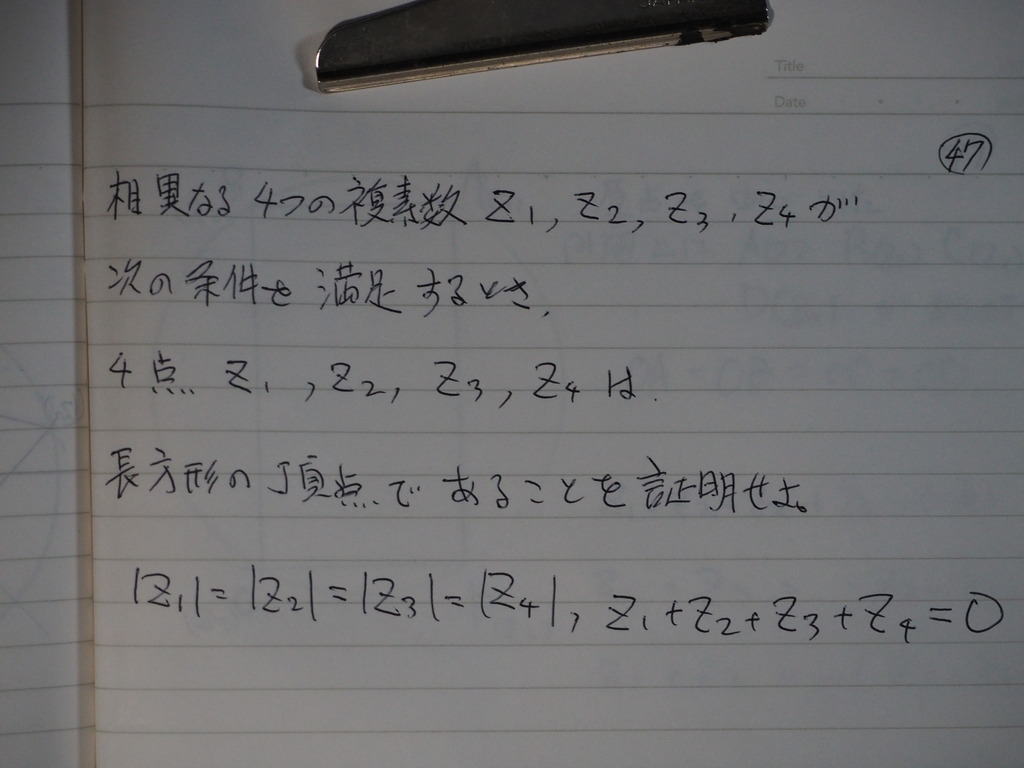 Title
Date
㊼
相異なる4つの複素数 Z1, Z2, Z3, Z4が
次の条件を満足するとき,
4点 Z1, Z2, Z3, Z4は
長方形の頂点であることを証明せよ。
|Z1|=|Z2|=|Z3|=|Z4|, Z1+Z2+Z3+Z4=0